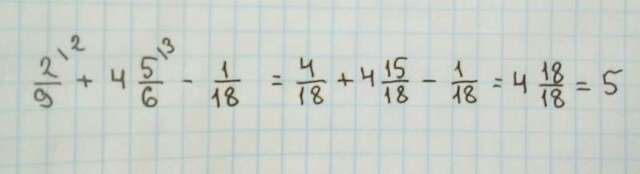 2/9\2 + 4 5/6\3 - 1/18 = 4/18 + 4 15/18 - 1/18 = 4 18/18 = 5